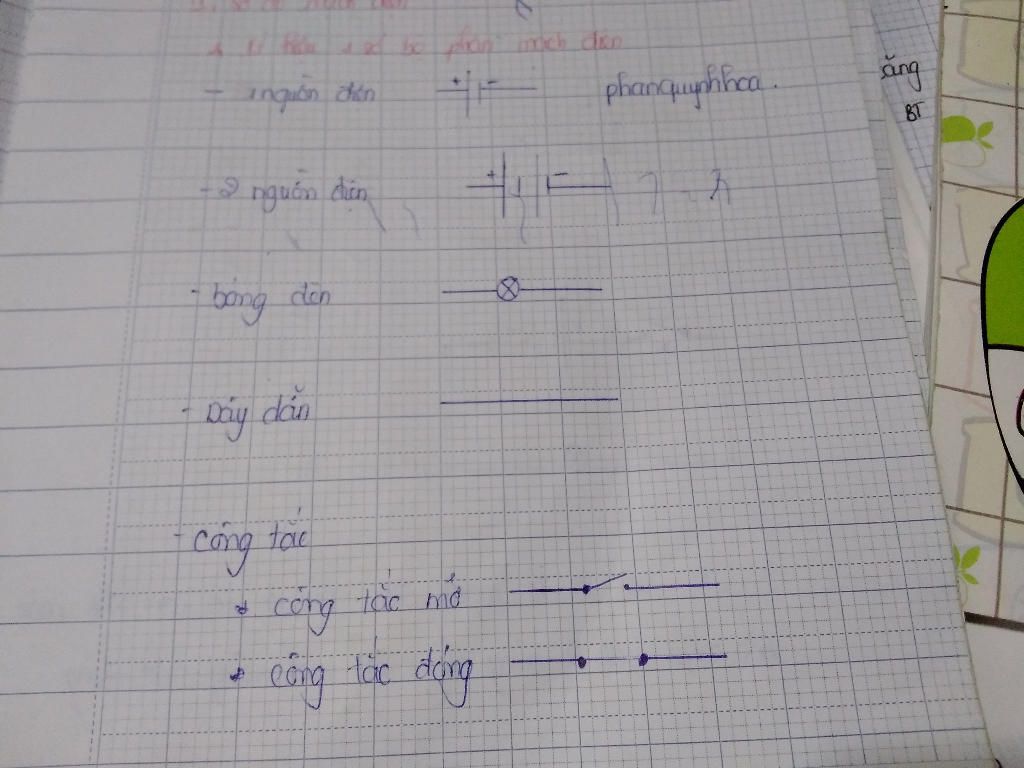 kí hiệu 1 số bộ phận mạch điện
- nguồn điện + - phanquynhhoa.
- 2 nguồn điện + -
- bóng đèn
- Dây dẫn
- Công tắc
* công tắc mở
* công tắc đóng
săng
BT